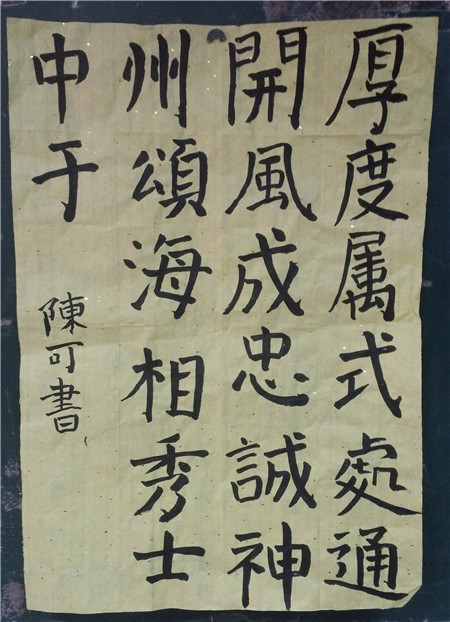 厚度属式處通
開風成忠誠神
州頌海相秀士
中于
陳可書